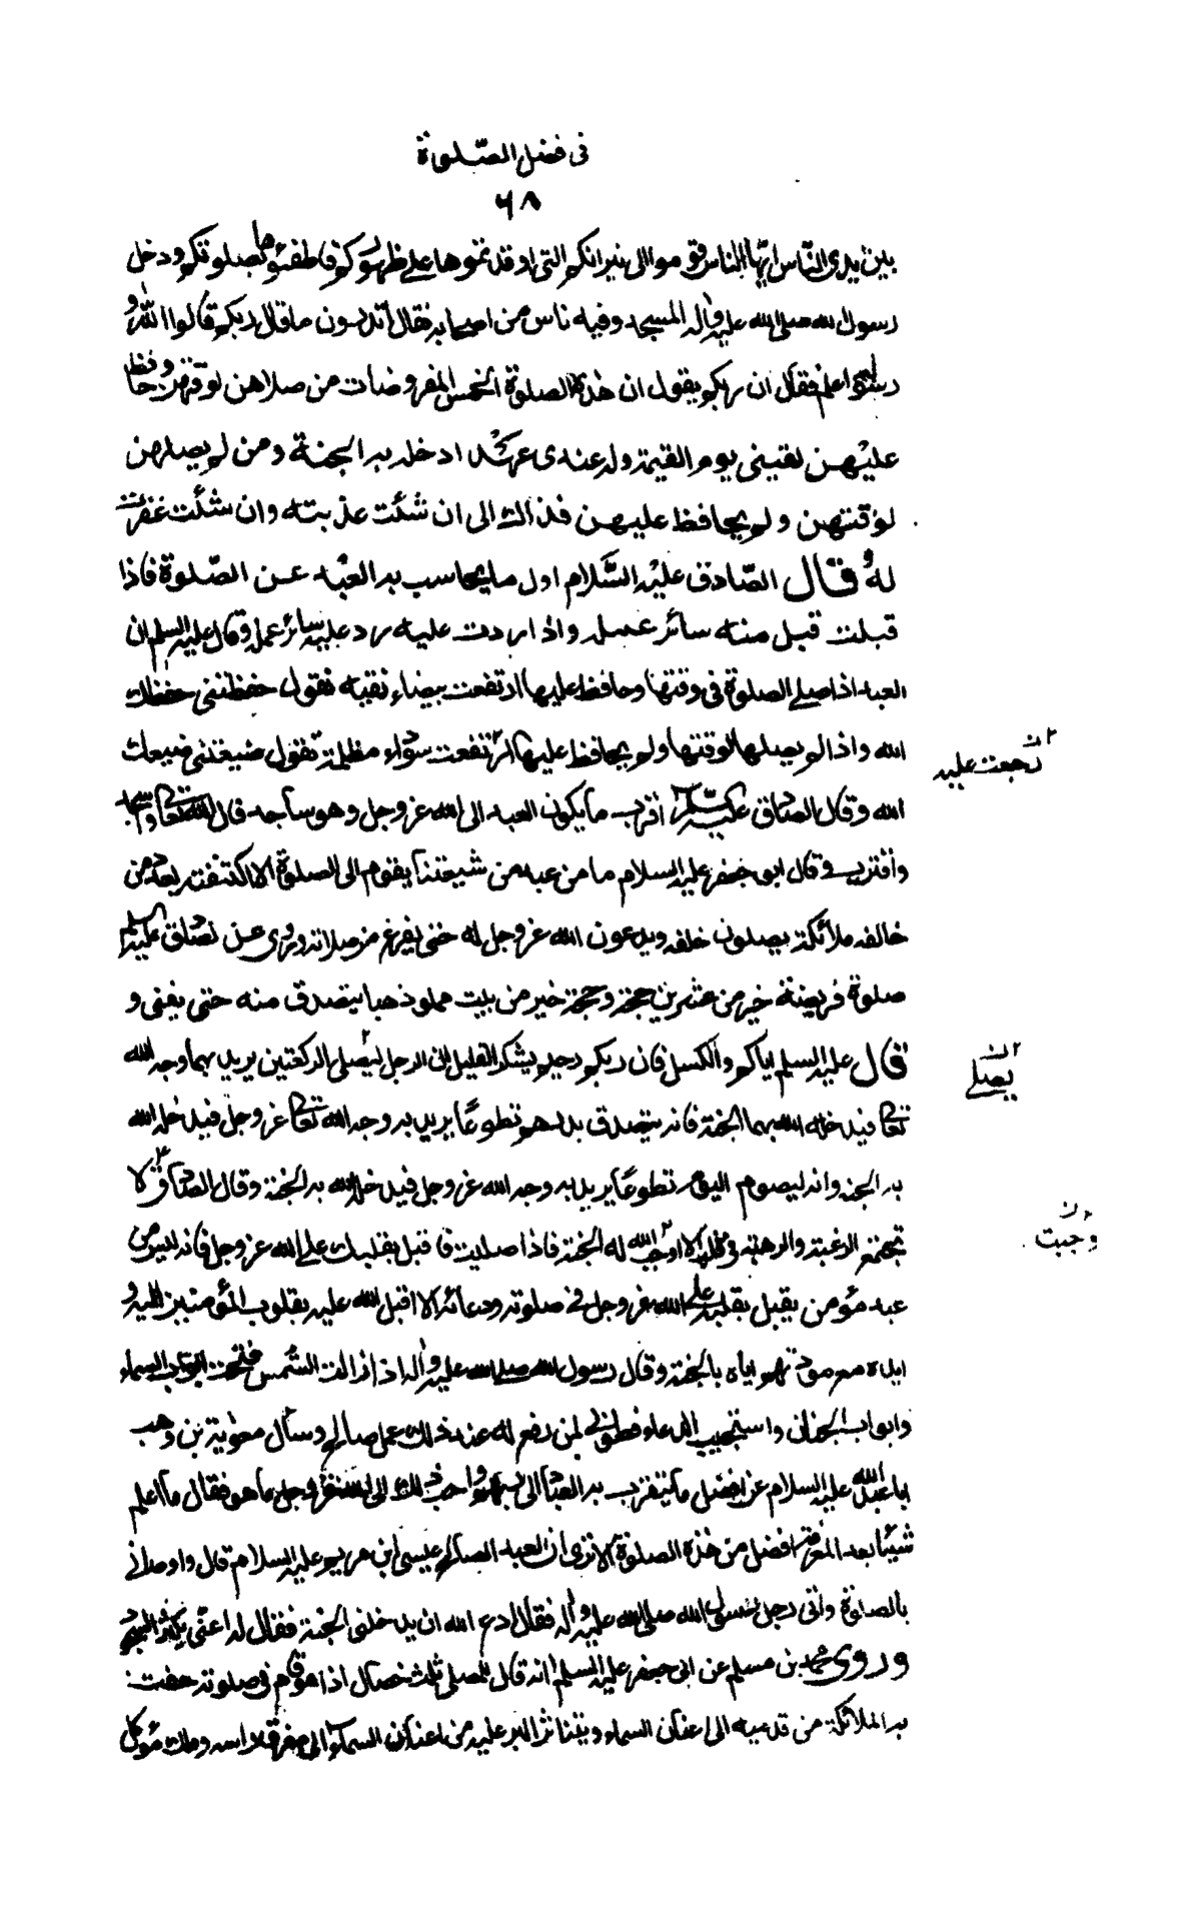 في فضل الصّلوة
٦٨
بين يدى الناس ايّها الناس قوموا الى نيرانكم التى اوقدتموها على ظهوركم فاطفئوها بصلوتكم ودخل
رسول الله صلى الله عليه واله المسجد وفيه ناس من اصحابه فقال اتدرون ما قال ربكم قالوا الله و
رسوله اعلم فقال ان ربكم يقول ان هذه الصلوة الخمس المفروضات من صلاهن لوقتهن وحافظ
عليهن لقينى يوم القيمة وله عندى عهد ادخله به الجنة ومن لم يصلهن
لوقتهن ولم يحافظ عليهن فذالك الى ان شئت عذبته وان شئت غفرت
له قال الصّادق عليه السَّلام اول ما يحاسب به العبد عن الصّلوة فاذا
قبلت قبل منه سائر عمله واذا ردت عليه رد عليه سائر عمله وقال عليه السلم ان
العبد اذا صلى الصلوة فى وقتها وحافظ عليها ارتفعت بيضاء نقية تقول حفظتنى حفظك
الله واذا لم يصلها لوقتها ولم يحافظ عليها ارتفعت سوداء مظلمة تقول ضيعتنى ضيعك
رجعت عليه
الله وقال الصادق عليه السلم اقرب ما يكون العبد الى الله عز وجل وهو ساجد قال الله تعالى واسجد
واقترب وقال ابو جعفر عليه السلام ما من عبد من شيعتنا يقوم الى الصلوة الا اكتنفته بعدد من
خالفه ملائكة يصلون خلفه ويدعون الله عز وجل له حتى يفرغ من صلاته وروى عن الصادق عليه السلم
صلوة فريضة خير من عشرين حجة وحجة خير من بيت مملو ذهبا يتصدق منه حتى يفنى و
قال عليه السلم اياكم والكسل فان ربكم رحيم يشكر القليل ان الرجل ليصلى الركعتين يريد بهما وجه الله
يصلى
تعالى فيدخله الله بهما الجنة فانه يتصدق بدرهم تطوعًا يريد به وجه الله تعالى عز وجل فيدخله الله
به الجنة وانه ليصوم اليوم تطوعًا يريد به وجه الله عز وجل فيدخله الله به الجنة وقال الصادق ع لا
تجتمع الرغبة والرهبة فى قلب الا اوجب الله له الجنة فاذا صليت فاقبل بقلبك على الله عز وجل فانه ليس من
وجبت
عبد مؤمن يقبل بقلبه على الله عز وجل فى صلوته ودعائه الا اقبل الله عليه بقلوب المؤمنين اليه و
ايده مع مودتهم اياه بالجنة وقال رسول الله صلى الله عليه واله اذا زالت الشمس فتحت ابواب السماء
وابواب الجنان واستجيب الدعاء فطوبى لمن رفع له عند ذلك عمل صالح وسأل معوية بن وهب
ابا عبد الله عليه السلام عن افضل ما يتقرب به العباد الى ربهم واحب ذلك الى الله عز وجل ما هو فقال ما اعلم
شيئا بعد المعرفة افضل من هذه الصلوة الا ترى ان العبد الصالح عيسى ابن مريم عليه السلام قال واوصانى
بالصلوة واتى رجل رسول الله صلى الله عليه واله فقال ادع الله ان يدخلنى الجنة فقال له اعنى بكثرة السجود
وروى محمد بن مسلم عن ابى جعفر عليه السلم انه قال للمصلى ثلث خصال اذا هو قام فى صلوته حفت
به الملائكة من قدميه الى اعنان السماء ويتناثر البر عليه من اعنان السماء الى مفرق راسه وملك موكل